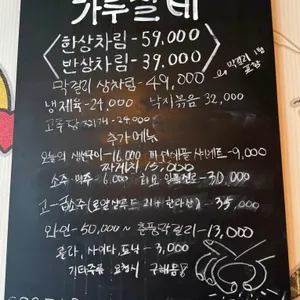 가루살비
<한상차림-59,000
반상차림-39,000>
막걸리 상차림-49,000 막걸리 1병 포함
냉제육-24,000 낙지볶음 32,000
고추 닭 찌개-24,000
추가메뉴
오늘의 생선구이-16,000 파인애플 샤베트-9,000
짜계치 15,000
소주·맥주-6,000 화요 일품진로-30,000
고급소주 35,000
와인-50,000~ 막걸리-13,000
콜라, 사이다, 토닉-3,000
기타주류 요청시